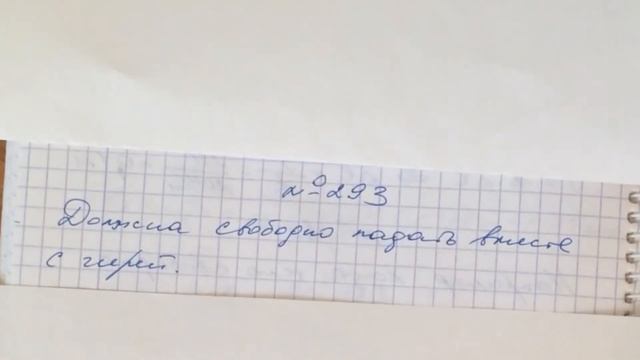 №293
Должна свободно падать вместе
с гирей.